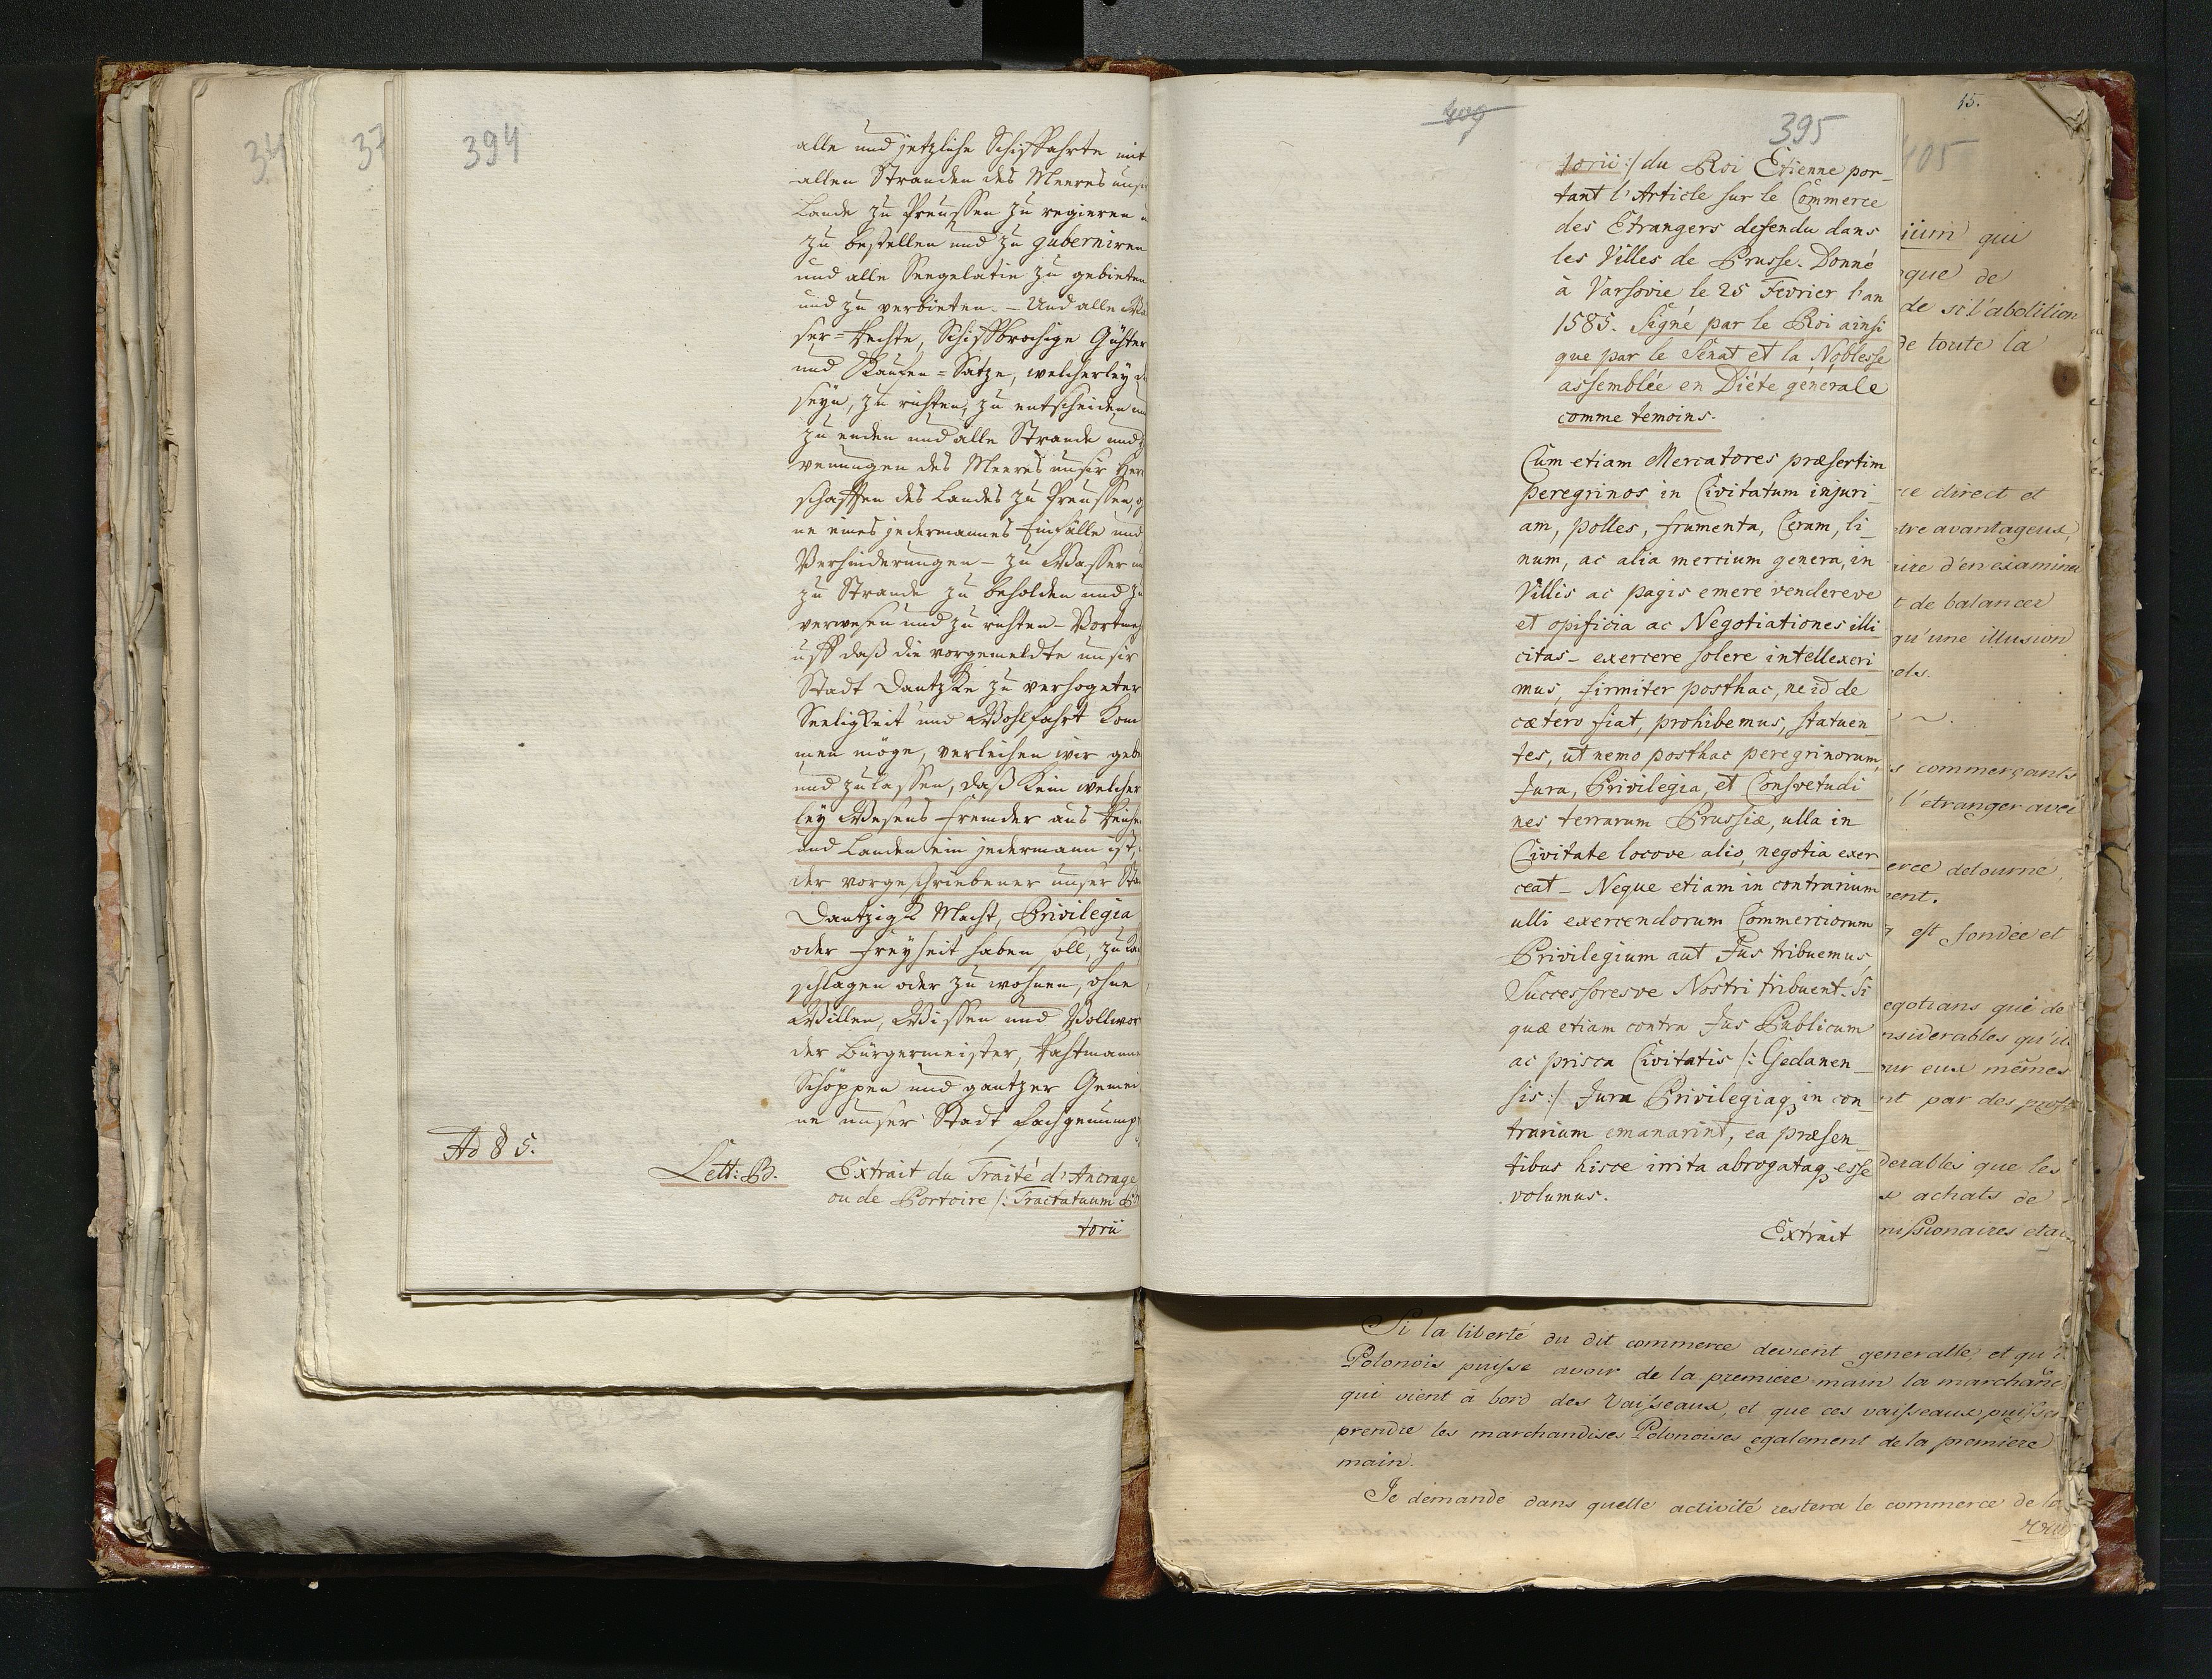 34
37
394
alle und jetzliche Schiffarte mit
allen Stranden des Meeres unsir
Lande zu Preussen zu regieren u
zu bestellen und zu guberniren
und alle Seegelatie zu gebieten
und zu verbieten. – Und alle
ser=Rechte, Schiffbrochige Güter
und Kaufen=Satze, welcherley
seyn, zu richten, zu entscheiden un
zu enden und alle Strande und
venungen des Meeres unsir Her
schafften des Landes zu Preussen, o
ne eines jedermannes Einfälle und
Verhinderungen – zu Wasser un
zu Strande zu beholden und zu
verwesen und zu richten – Vortme
uff daß die vorgemeldte unsir
Stadt Dantzke zu verhogeter
Seeligkeit und Wohlfahrt kom
men möge, verleihen wir gebe
und zulassen, daß kein welcher
ley Wesens fremder aus Reiche
und Landen ein jedermann ist,
der vorgeschriebener unser Sta
Dantzigk Macht, Privilegia
oder Freyheit haben soll, zu ka
schlagen oder zu wohnen, ohne
Willen, Wissen und Vollwor
der Bürgermeister, Rahtmanne
Schöppen und gantzer Gemei
ne unser Stadt
Ad § 5.
Lett: B.
Extrait du Traité d'Ancrage
ou de Portoire /: Tractatuum P
torii
409
395
torii :/ du Roi Etienne por-
tant l'Article sur le Commerce
des Etrangers defendu dans
les Villes de Prusse. Donné
à Varsovie le 25 Fevrier l'an
1585. Signé par le Roi ainsi
que par le Senat et la Noblesse
assemblée en Diéte generale
comme temoins.
Cum etiam Mercatores præsertim
peregrinos in Civitatum injuri-
am, polles, frumenta, Ceram, li-
num, ac alia mercium genera, in
Villis ac pagis emere vendereve
et opificia ac Negotiationes illi-
citas – exercere solere intellexeri-
mus, firmiter posthac, ne id de
cætero fiat, prohibemus, statuen-
tes, ut nemo posthac peregrinorum,
Jura, Privilegia, et Consvetudi-
nes terrarum Prussiæ, ulla in
Civitate locove alio, negotia exer-
ceat – Neque etiam in contrarium
ulli exercendorum Commerciorum
Privilegium aut Jus tribuemus,
Successoresve Nostri tribuent. Si
quæ etiam contra Jus Publicum
ac prisca Civitatis /: Gedanen-
sis :/ Jura Privilegiaq3 in con-
trarium emanarint, ea præsen-
tibus hisce irrita abrogataq3 esse
volumus.
Extrait
15.
405
qui
que de
de si l'abolition
de toute la
direct et
avantageux,
d'en examiner
t de balancer
qu'une illusion
commerçants
l'etranger avec
detourné,
est fondée et
egotians que de
nsiderables qu'il
our eux mêmes
par des
derables que les
achats de
missionaires et
Si la liberté du dit commerce devient generalle, et qu'
Polonois puisse avoir de la premiere main la marchand
qui vient à bord des Vaisseaux, et que ces vaisseaux puisse
prendre les marchandises Polonoises egalement de la premiere
main.
Je demande dans quelle activité restera le commerce de la